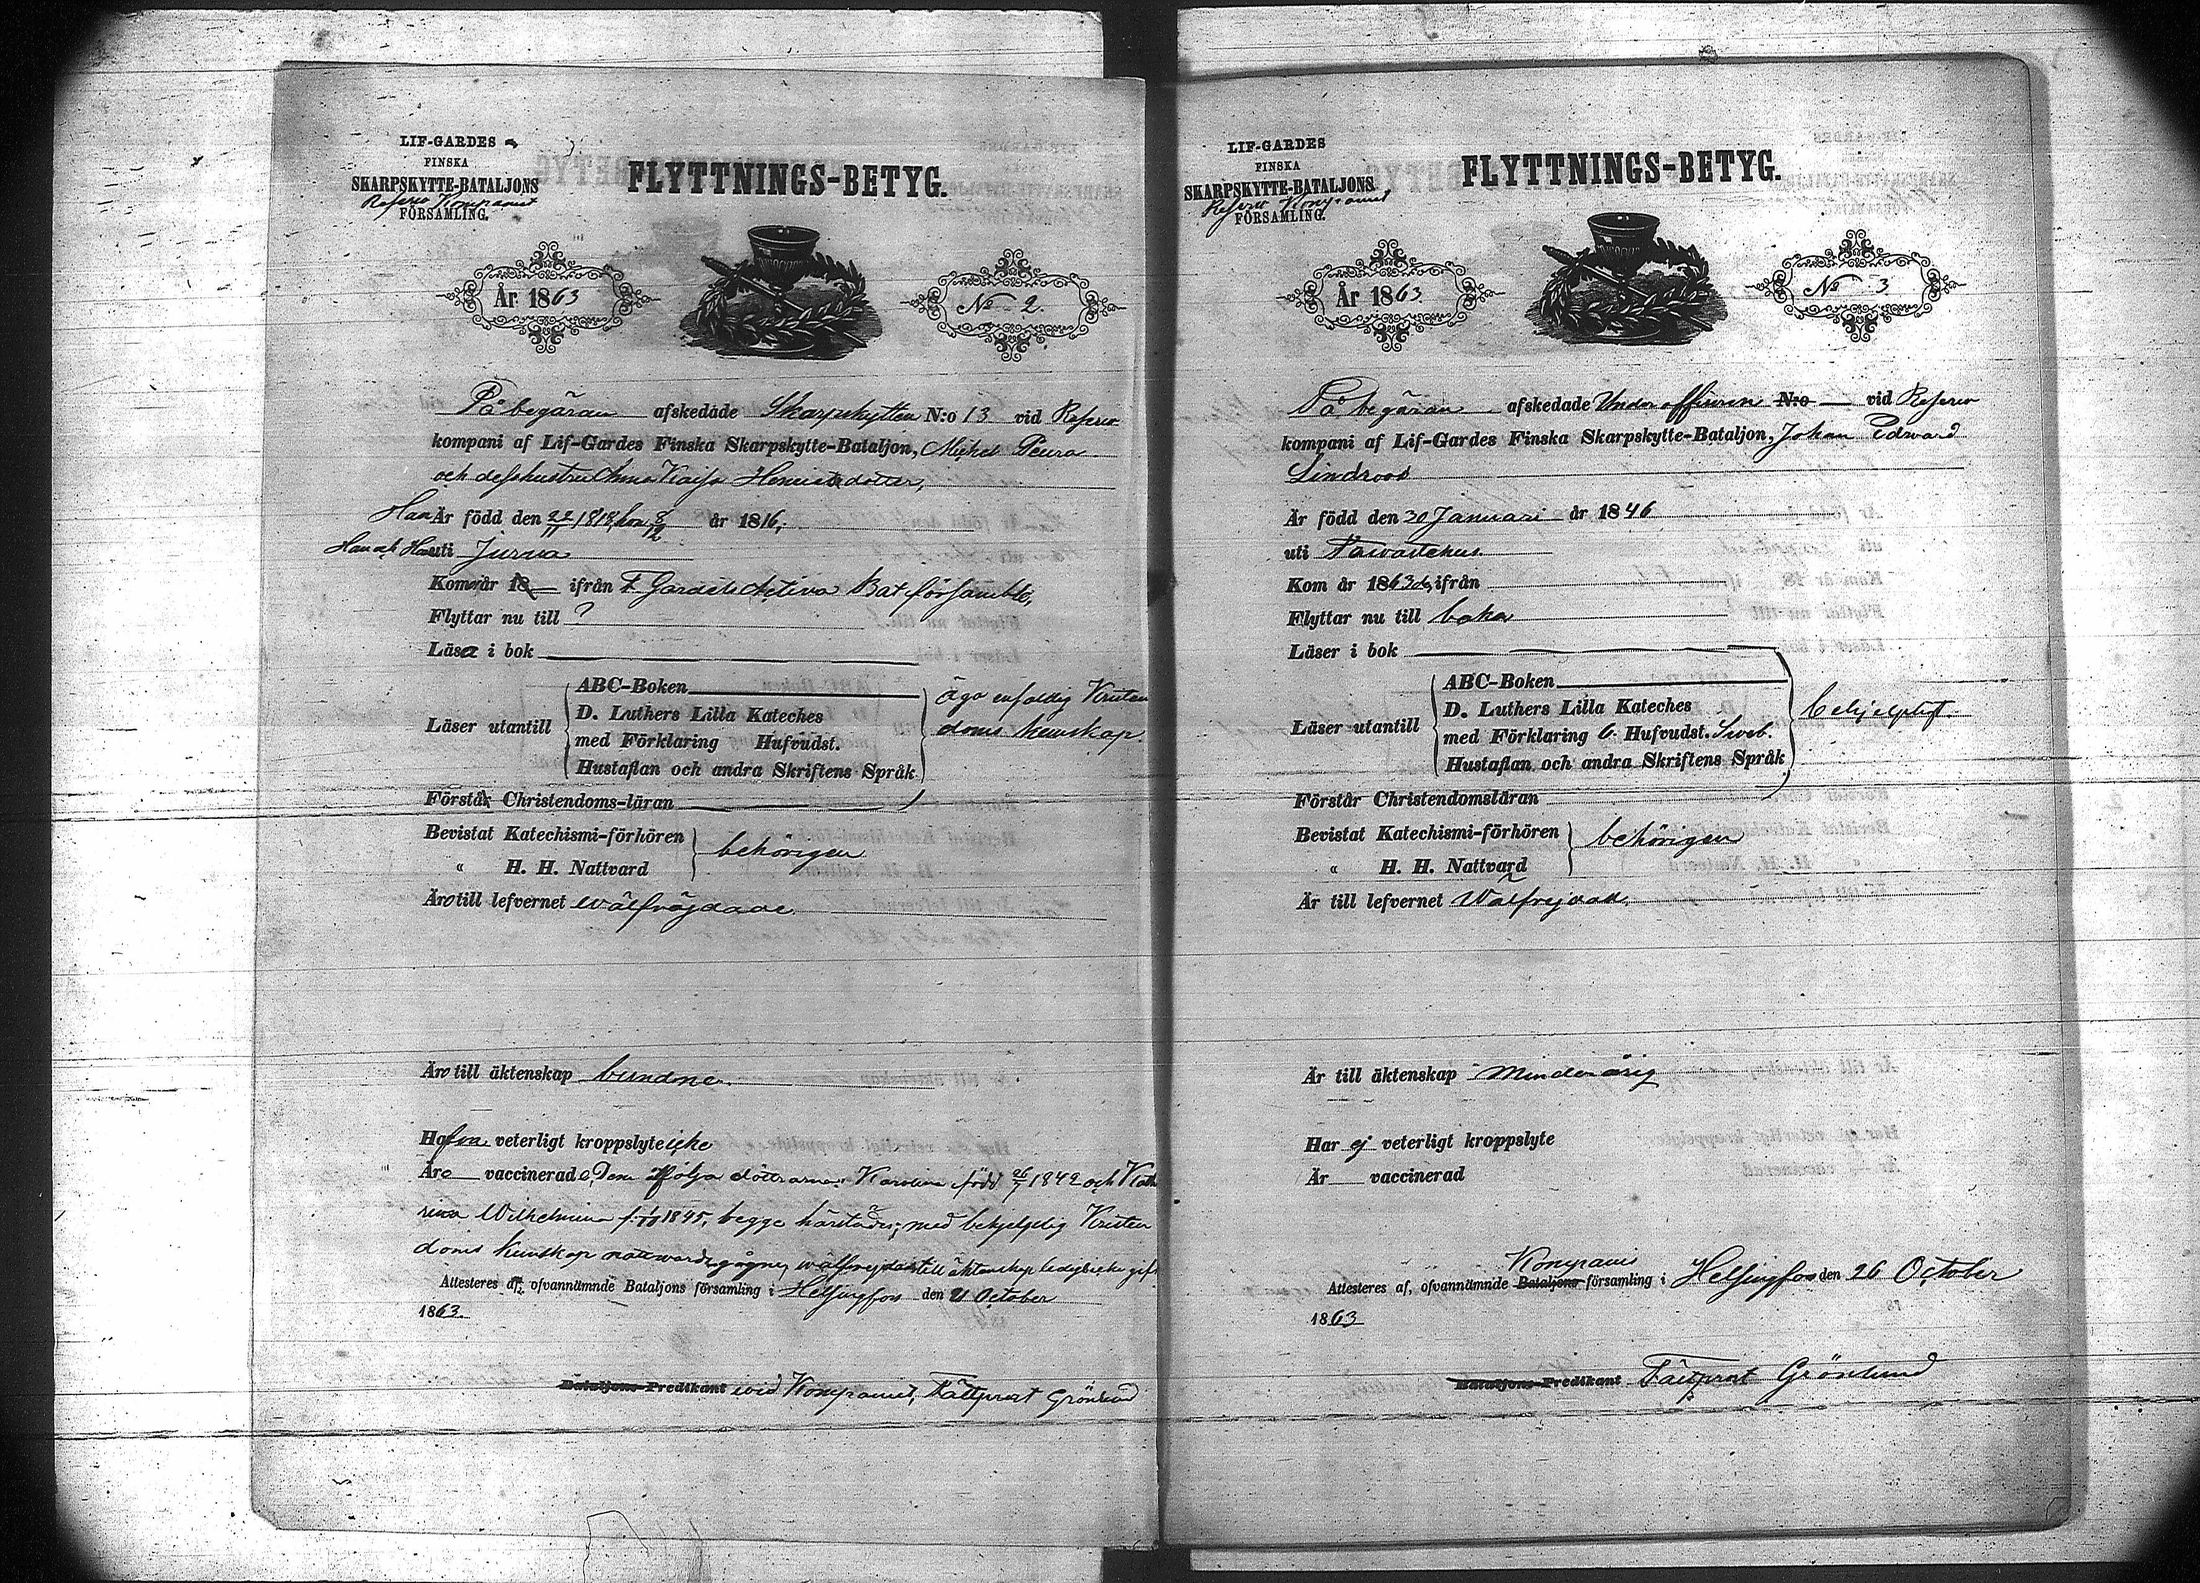 LIF-GARDES
FINSKA
SKARPSKYTTE-BATALJONS
Reserv Kompaniet
FÖRSAMLING.
FLYTTNINGS-BETYG.
År 1863
No 2.
På begäran afskedade Skarpskytten N:o 13 vid Reserv
kompani af Lif-Gardes Finska Skarpskytte-Bataljon, Michel Peura
och dess hustru Anna Kaisa Henricsdotter,
Han Är född den 22/11 1818, hon 8/12 år 1816,
Han och Hon uti Jurva
Kom år 18 ifrån F. Gardets Activa Bat församling,
Flyttar nu till ?
Läsa i bok
ABC-Boken
D. Luthers Lilla Kateches
Läser utantill
med Förklaring Hufvudst.
Hustaflan och andra Skriftens Språk
äga enfaldig Kristen
doms kunskap.
Förstår Christendoms-läran
Bevistat Katechismi-förhören
" H. H. Nattvard
behörigen
Äro till lefvernet wälfräjdade.
Äro till äktenskap bundne.
Hafva veterligt kroppslyte icke
Äro vaccinerade, Dem åtfölja döttrarna: Karolina född 26/7 1842 och Katha
rina Wilhelmina f. 1/10 1845, begge härstädes, med behjelplig Kristen
doms kunskap nattvardsgångne, wälfrejdade till äktenskap lediga icke gift
Attesteres af, ofvannämnde Bataljons församling i Helsingfors den 21 October
1863.
Bataljons-Predikant wid Kompaniet, Fältprost Grönlund
LIF-GARDES
FINSKA
SKARPSKYTTE-BATALJONS
Reserv Kompaniet
FÖRSAMLING.
FLYTTNINGS-BETYG.
År 1863
No 3.
På begäran afskedade Under officeren N:o vid Reserv
kompani af Lif-Gardes Finska Skarpskytte-Bataljon, Johan Edvard
Lindroos
Är född den 30 Januari år 1846
uti Tavastehus.
Kom år 1863 ifrån
Flyttar nu till baka
Läser i bok
ABC-Boken
D. Luthers Lilla Kateches
Läser utantill
med Förklaring 6. Hufvudst. Sveb.
Hustaflan och andra Skriftens Språk
behjelpligt.
Förstår Christendomsläran
Bevistat Katechismi-förhören
" H. H. Nattvard
behörigen
Är till lefvernet Wälfrejdad.
Är till äktenskap Minderårig
Har ej veterligt kroppslyte
Är vaccinerad
Kompani
Attesteres af, ofvannämnde Bataljons församling i Helsingfors den 26 October
1863
Bataljons-Predikant Fältprost Grönlund